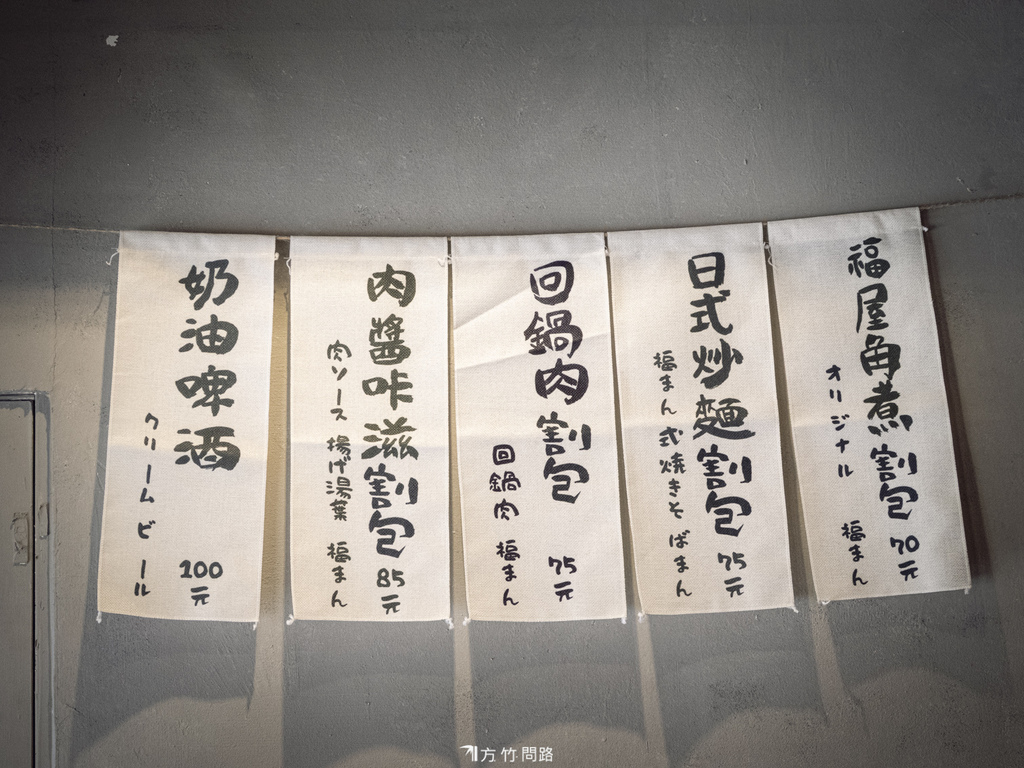 福屋角煮割包 70元
オリジナル 福まん
日式炒麵割包 75元
福まん式焼きそばまん
回鍋肉割包 75元
回鍋肉 福まん
肉醬咔滋割包 85元
肉ソース 揚げ湯葉 福まん
奶油啤酒 100元
クリームビール
方竹問路